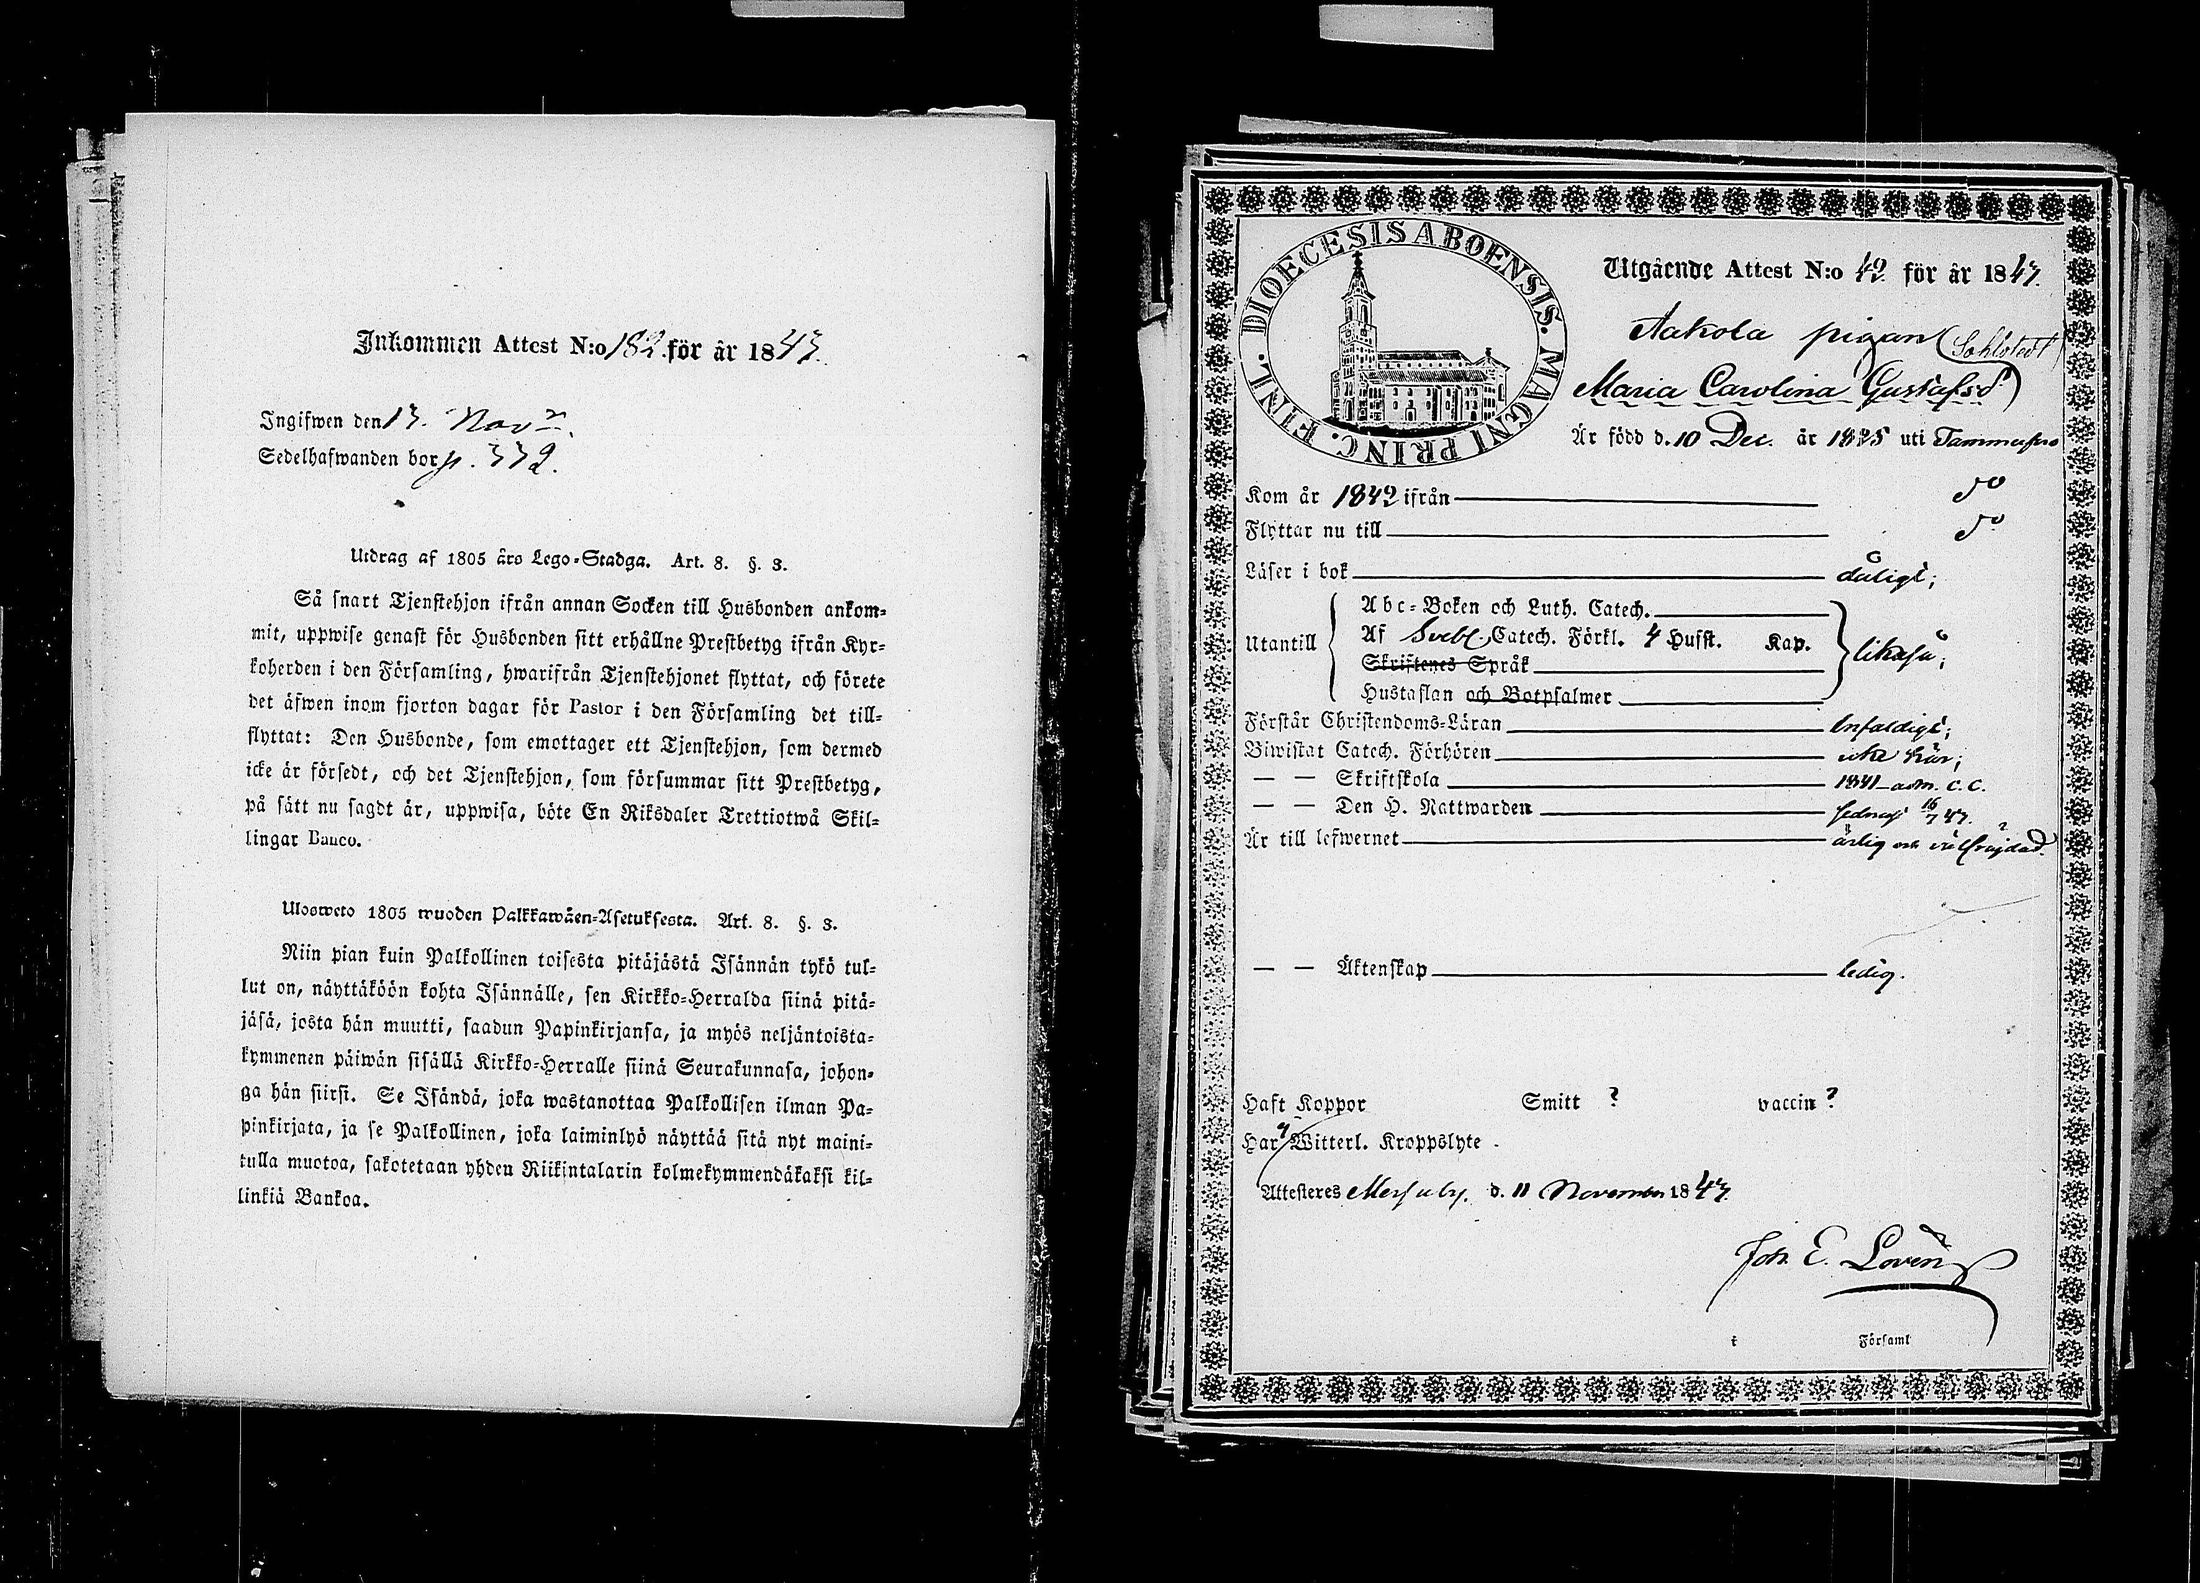 Inkommen Attest N:o 182. för år 1843.
Ingifwen den 13. Nov.
Sedelhafwanden bor p. 332.
Utdrag af 1805 års Lego-Stadga. Art. 8. §. 3.
Så snart Tjenstehjon ifrån annan Socken till Husbonden ankom-
mit, uppwise genast för Husbonden sitt erhållne Prestbetyg ifrån Kyr-
koherden i den Församling, hwarifrån Tjenstehjonet flyttat, och förete
det äfwen inom fjorton dagar för Pastor i den Församling det till-
flyttat: Den Husbonde, som emottager ett Tjenstehjon, som dermed
icke är försedt, och det Tjenstehjon, som försummar sitt Prestbetyg,
på sätt nu sagdt är, uppwisa, böte En Riksdaler Trettiotwå Skil-
lingar Banco.
Ulosweto 1805 wuoden Palkkawäen-Asetuksesta. Art. 8. §. 3.
Niin pian kuin Palkollinen toisesta pitäjästä Isännän tykö tul-
lut on, näyttäköön kohta Isännälle, sen Kirkko-Herralda siinä pitä-
jäsä, josta hän muutti, saadun Papinkirjansa, ja myös neljäntoista-
kymmenen päiwän sisällä Kirkko-Herralle siinä Seurakunnasa, johon-
ga hän siirsi. Se Isändä, joka wastanottaa Palkollisen ilman Pa-
pinkirjata, ja se Palkollinen, joka laiminlyö näyttää sitä nyt maini-
tulla muotoa, sakotetaan yhden Riikintalarin kolmekymmendäkaksi kil-
linkiä Bankoa.
DIOECESIS ABOENSIS. MAGNI PRINC. FINL.
Utgående Attest N:o 42. för år 1843.
Aakola pigan (Sahlstedt)
Maria Carolina Gustafsd.
Är född d. 10 Dec. år 1825 uti Tammerfors
Kom år 1842 ifrån do
Flyttar nu till do
Läser i bok dåligt;
Utantill
Abc-Boken och Luth. Catech.
Af Svebl. Catech. Förkl. 4 Hufst. Kap.
Skriftenes Språk
likaså;
Hustaflan och Botpsalmer
Förstår Christendoms-Läran Enfaldigt;
Biwistat Catech. Förhören icke här;
— — Skriftskola 1841 adm. c. c.
— — Den H. Nattwarden sednast 16/7 43.
Är till lefwernet ärlig och välfräjdad.
— — Äktenskap ledig.
Haft Koppor Smitt ? vaccin ?
Har Witterl. Kroppslyte
Attesteres Messuby. d. 11 November 1843
Joh. E. Lovén
i Församl